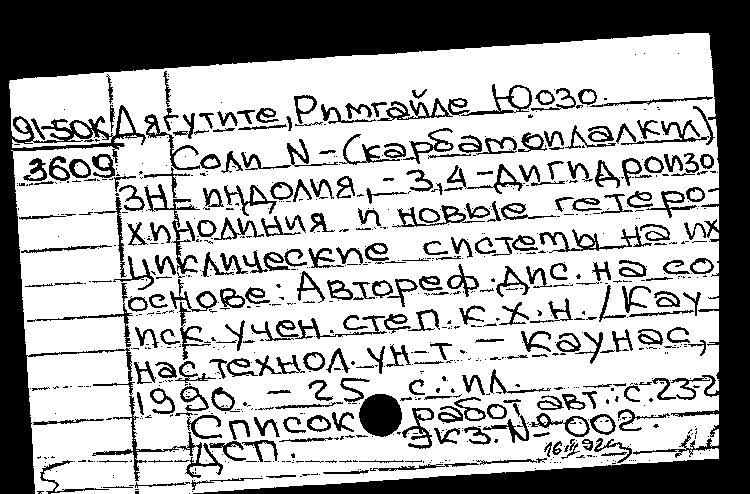 91-50К Дягутите, Римгайле Юозо.
3609 Соли N-(карбамоилалкил)
3Н-индолия,-3,4-дигидроизо
хинолиния и новые гетеро-
циклические системы на их
основе: Автореф. дис. на со
иск. учен. степ. к.х.н. / Кау-
нас. технол. ун-т. - Каунас,
1990. - 25 с.: ил.
Список работ авт.: с. 23-2
ДСП. Экз. № 002.
16 III 92
5